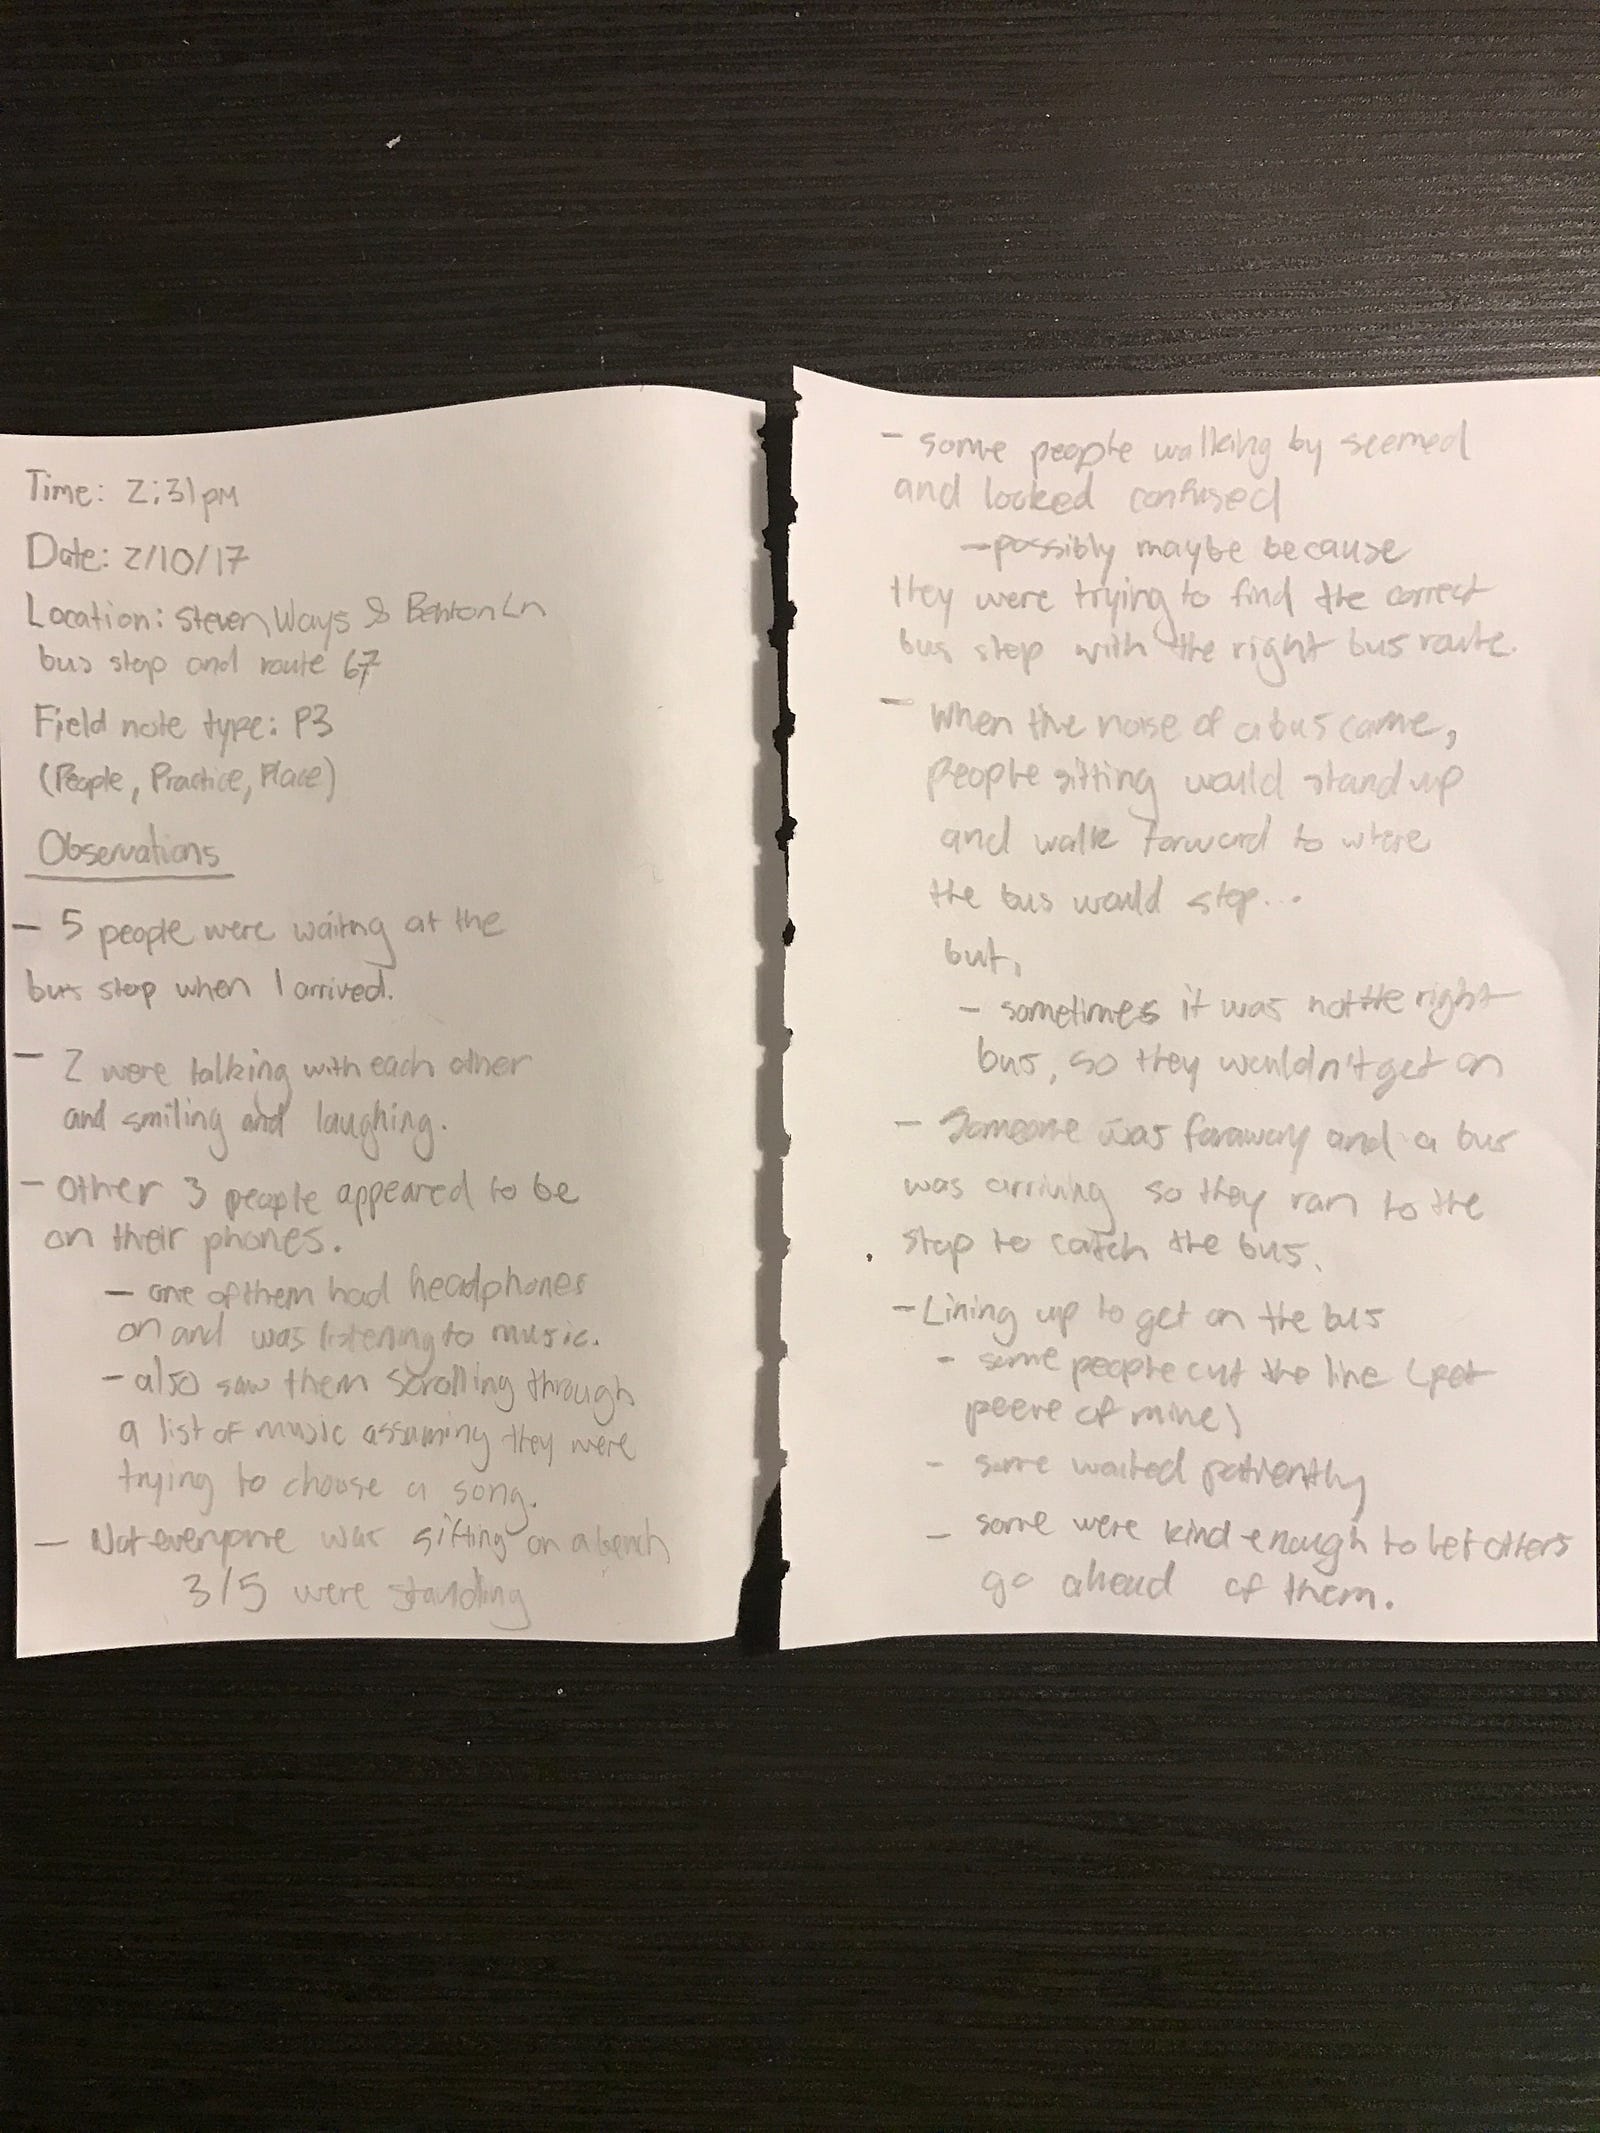 Time: 2:31pm
Date: 2/10/17
Location: Steven Ways & Benton Ln
bus stop and route 67
Field note type: P3
(People, Practice, Place)
Observations
- 5 people were waitng at the
bus stop when I arrived.
- 2 were talking with each other
and smiling and laughing.
- Other 3 people appeared to be
on their phones.
- one of them had headphones
on and was listening to music.
- also saw them scrolling through
a list of music assuming they were
trying to choose a song.
- Not everyone was sitting on a bench
3/5 were standing
- some people walking by seemed
and looked confused
- possibly maybe because
they were trying to find the correct
bus stop with the right bus route.
- when the noise of a bus came,
people sitting would stand up
and walk forward to where
the bus would stop...
but,
- sometimes it was not the right
bus, so they wouldn't get on
- Someone was faraway and a bus
was arriving so they ran to the
stop to catch the bus.
- Lining up to get on the bus
- some people cut the line (pet
peeve of mine)
- some waited patiently
- some were kind enough to let others
go ahead of them.